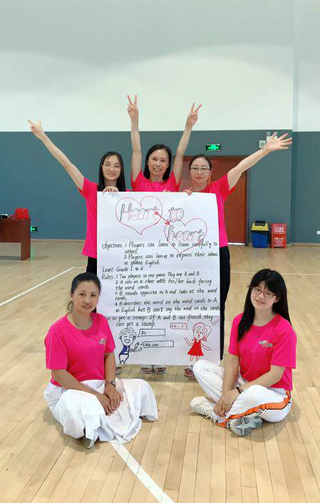 Heart to
heart
Objectives: 1 Players can learn to listen carefully to
others.
2 Players can learn to express their ideas
in spoken English.
Level: Grade 1 to 6.
Rules: 1 Two players in one game. They are A and B.
2 A sits in a chair with his/her back facing
the word cards.
3 B stands opposite to A and looks at the word
cards.
4 B describes the word on the word cards to A
in English, but B can't say the word on the cards
to get a stamp. If A and B can finish, they
can get a stamp.